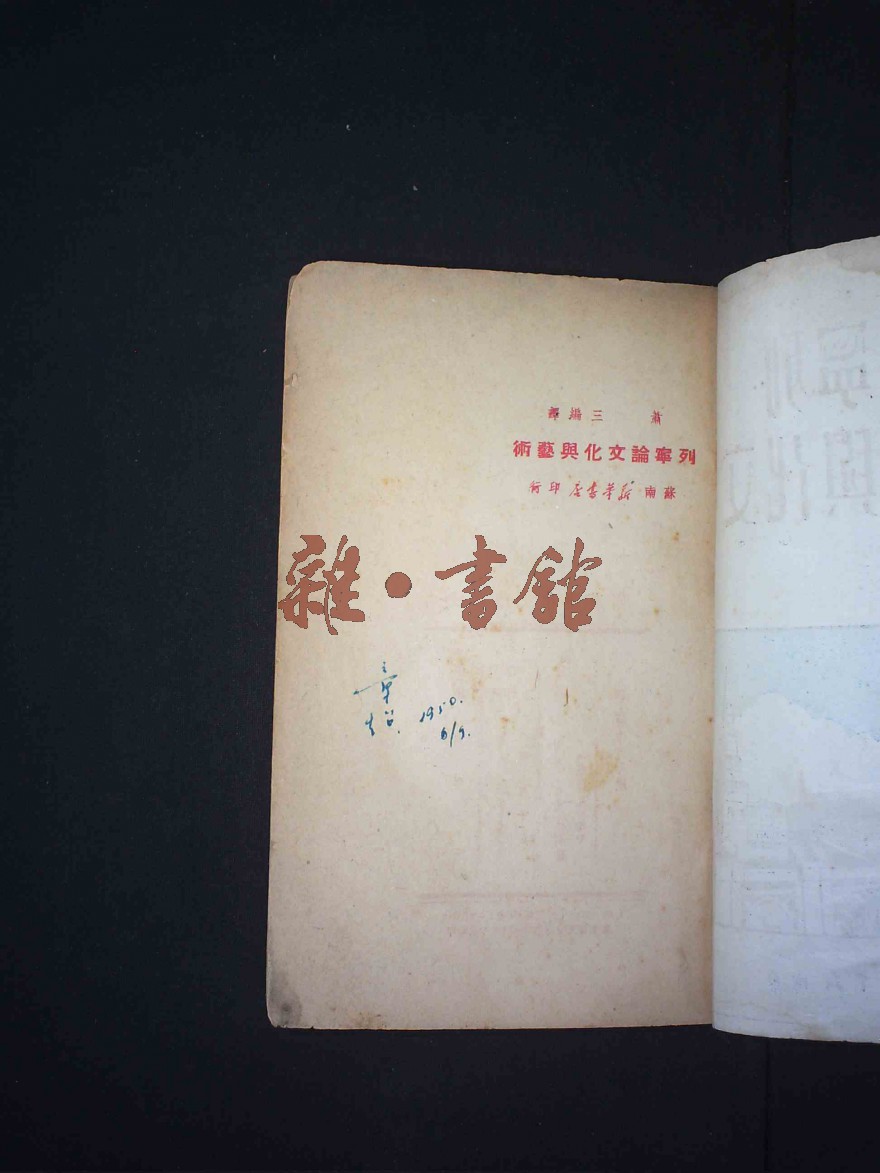 蕭 三 編 譯
列寧論文化與藝術
蘇南新華書店印行
雜·書館
章
1950.
6/9.